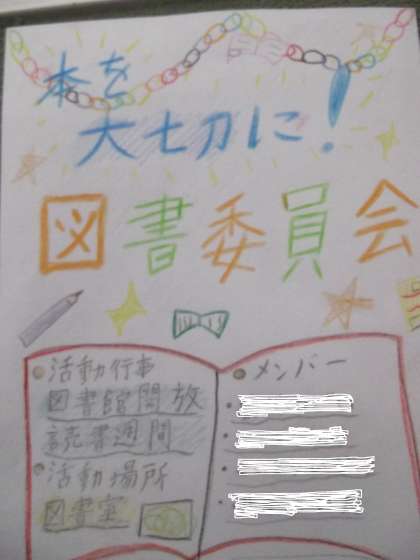 本を
大切に!
図書委員会
活動行事
図書館開放
読書週間
活動場所
図書室
メンバー